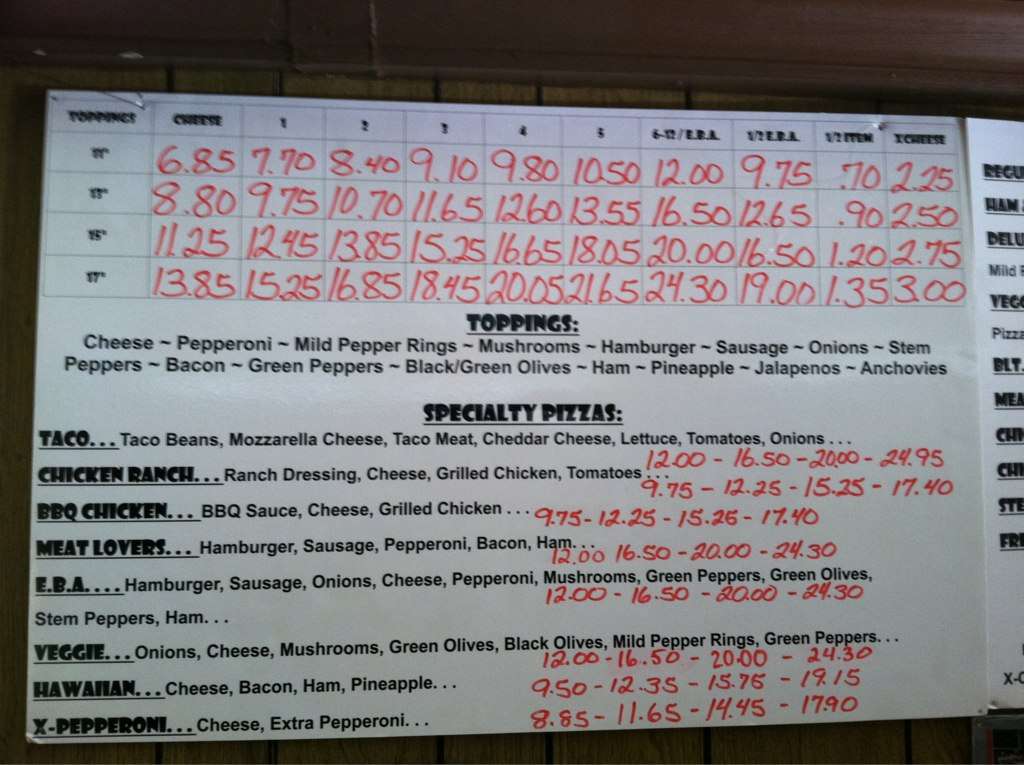 TOPPINGS CHEESE 1 2 3 4 5 6-12 / E.B.A. 1/2 E.B.A. 1/2 ITEM X CHEESE
11" 6.85 7.70 8.40 9.10 9.80 10.50 12.00 9.75 .70 2.25
13" 8.80 9.75 10.70 11.65 12.60 13.55 16.50 12.65 .90 2.50
15" 11.25 12.45 13.85 15.25 16.65 18.05 20.00 16.50 1.20 2.75
17" 13.85 15.25 16.85 18.45 20.05 21.65 24.30 19.00 1.35 3.00
TOPPINGS:
Cheese ~ Pepperoni ~ Mild Pepper Rings ~ Mushrooms ~ Hamburger ~ Sausage ~ Onions ~ Stem
Peppers ~ Bacon ~ Green Peppers ~ Black/Green Olives ~ Ham ~ Pineapple ~ Jalapenos ~ Anchovies
SPECIALTY PIZZAS:
TACO... Taco Beans, Mozzarella Cheese, Taco Meat, Cheddar Cheese, Lettuce, Tomatoes, Onions . . .
12.00 - 16.50 - 20.00 - 24.95
CHICKEN RANCH... Ranch Dressing, Cheese, Grilled Chicken, Tomatoes . . .
9.75 - 12.25 - 15.25 - 17.40
BBQ CHICKEN... BBQ Sauce, Cheese, Grilled Chicken . . . 9.75 - 12.25 - 15.25 - 17.40
MEAT LOVERS... Hamburger, Sausage, Pepperoni, Bacon, Ham. . .
12.00 16.50 - 20.00 - 24.30
E.B.A.... Hamburger, Sausage, Onions, Cheese, Pepperoni, Mushrooms, Green Peppers, Green Olives,
12.00 - 16.50 - 20.00 - 24.30
Stem Peppers, Ham. . .
VEGGIE... Onions, Cheese, Mushrooms, Green Olives, Black Olives, Mild Pepper Rings, Green Peppers. . .
12.00 - 16.50 - 20.00 - 24.30
HAWAIIAN... Cheese, Bacon, Ham, Pineapple. . . 9.50 - 12.35 - 15.75 - 19.15
X-PEPPERONI... Cheese, Extra Pepperoni. . . 8.85 - 11.65 - 14.45 - 17.90
HAM
Mild
BLT.